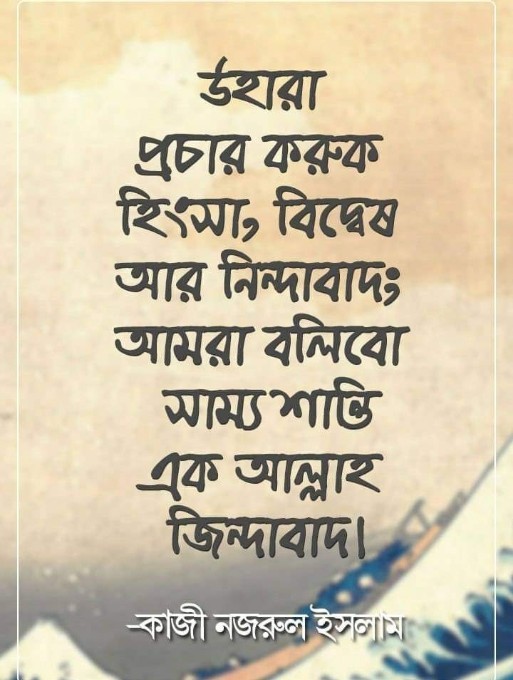 উহারা
প্রচার করুক
হিংসা, বিদ্বেষ
আর নিন্দাবাদঃ
আমরা বলিবো
সাম্য শান্তি
এক আল্লাহ
জিন্দাবাদ।
-কাজী নজরুল ইসলাম